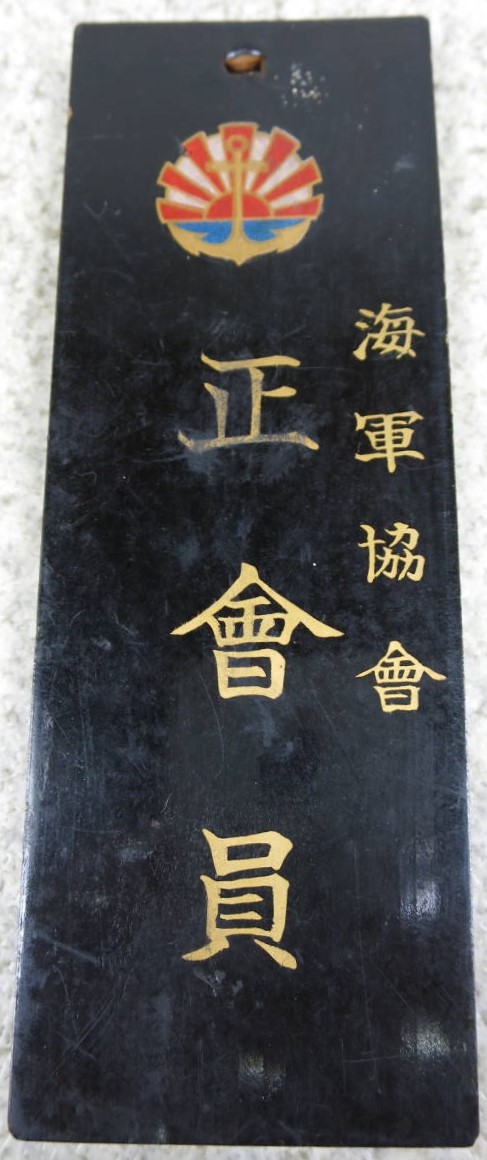 海軍協會
正會員